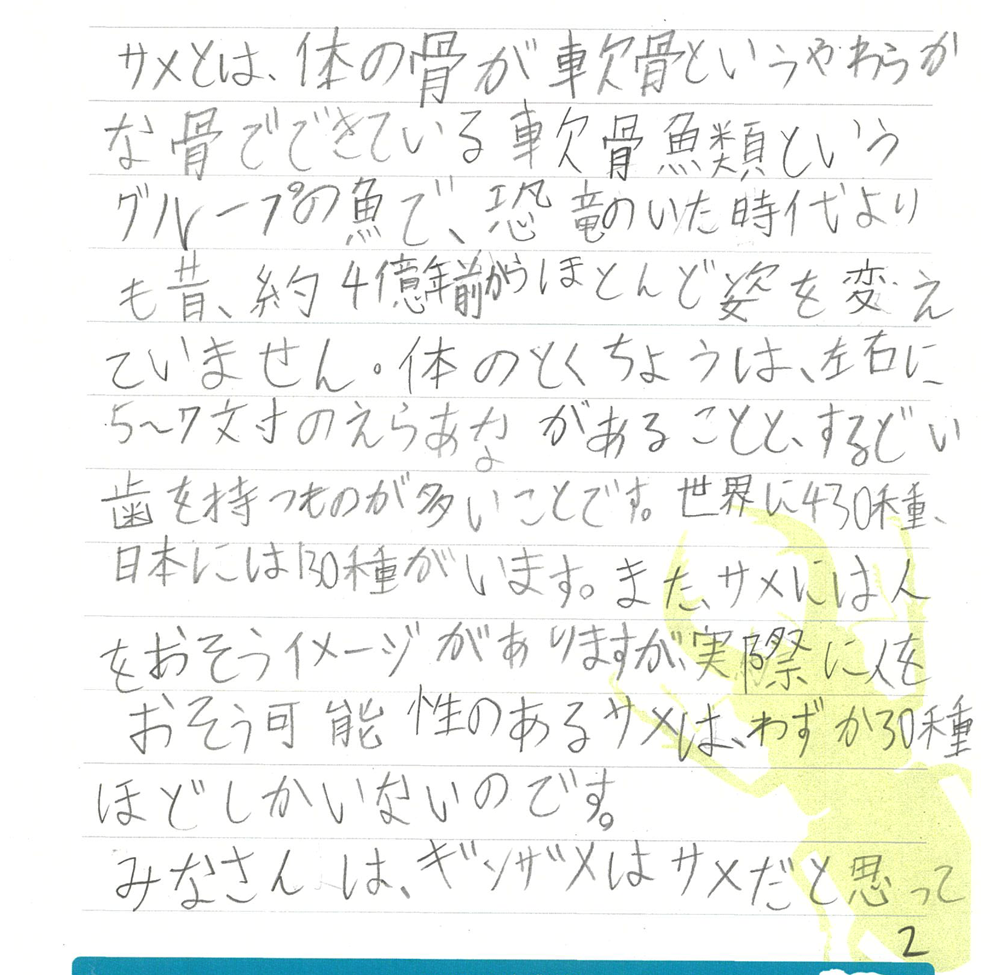 サメとは、体の骨が軟骨というやわらか
な骨でできている軟骨魚類という
グループの魚で、恐竜のいた時代より
も昔、約4億年前からほとんど姿を変え
ていません。体のとくちょうは、左右に
5〜7対のえらあながあることと、するどい
歯を持つものが多いことです。世界に430種、
日本には130種がいます。また、サメには人
をおそうイメージがありますが、実際に人を
おそう可能性のあるサメは、わずか30種
ほどしかいないのです。
みなさんは、ギンザメはサメだと思って
2